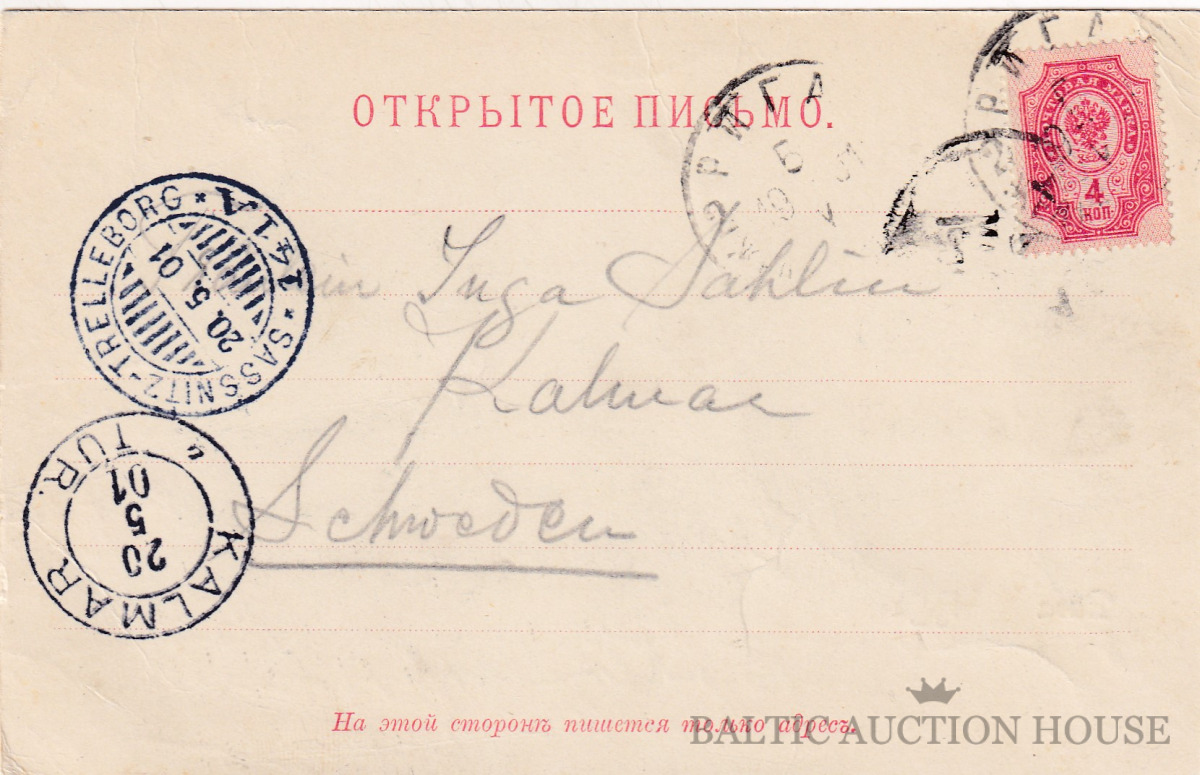 ОТКРЫТОЕ ПИСЬМО.
РИГА
5
ПОЧТОВАЯ МАРКА
4
КОП.
SASSNITZ-TRELLEBORG * 141A *
20. 5. 01
Inga Dahlin
Kalmar
Schweden
KALMAR
TUR.
20
5
01
На этой сторонѣ пишется только адресъ.
BALTIC AUCTION HOUSE